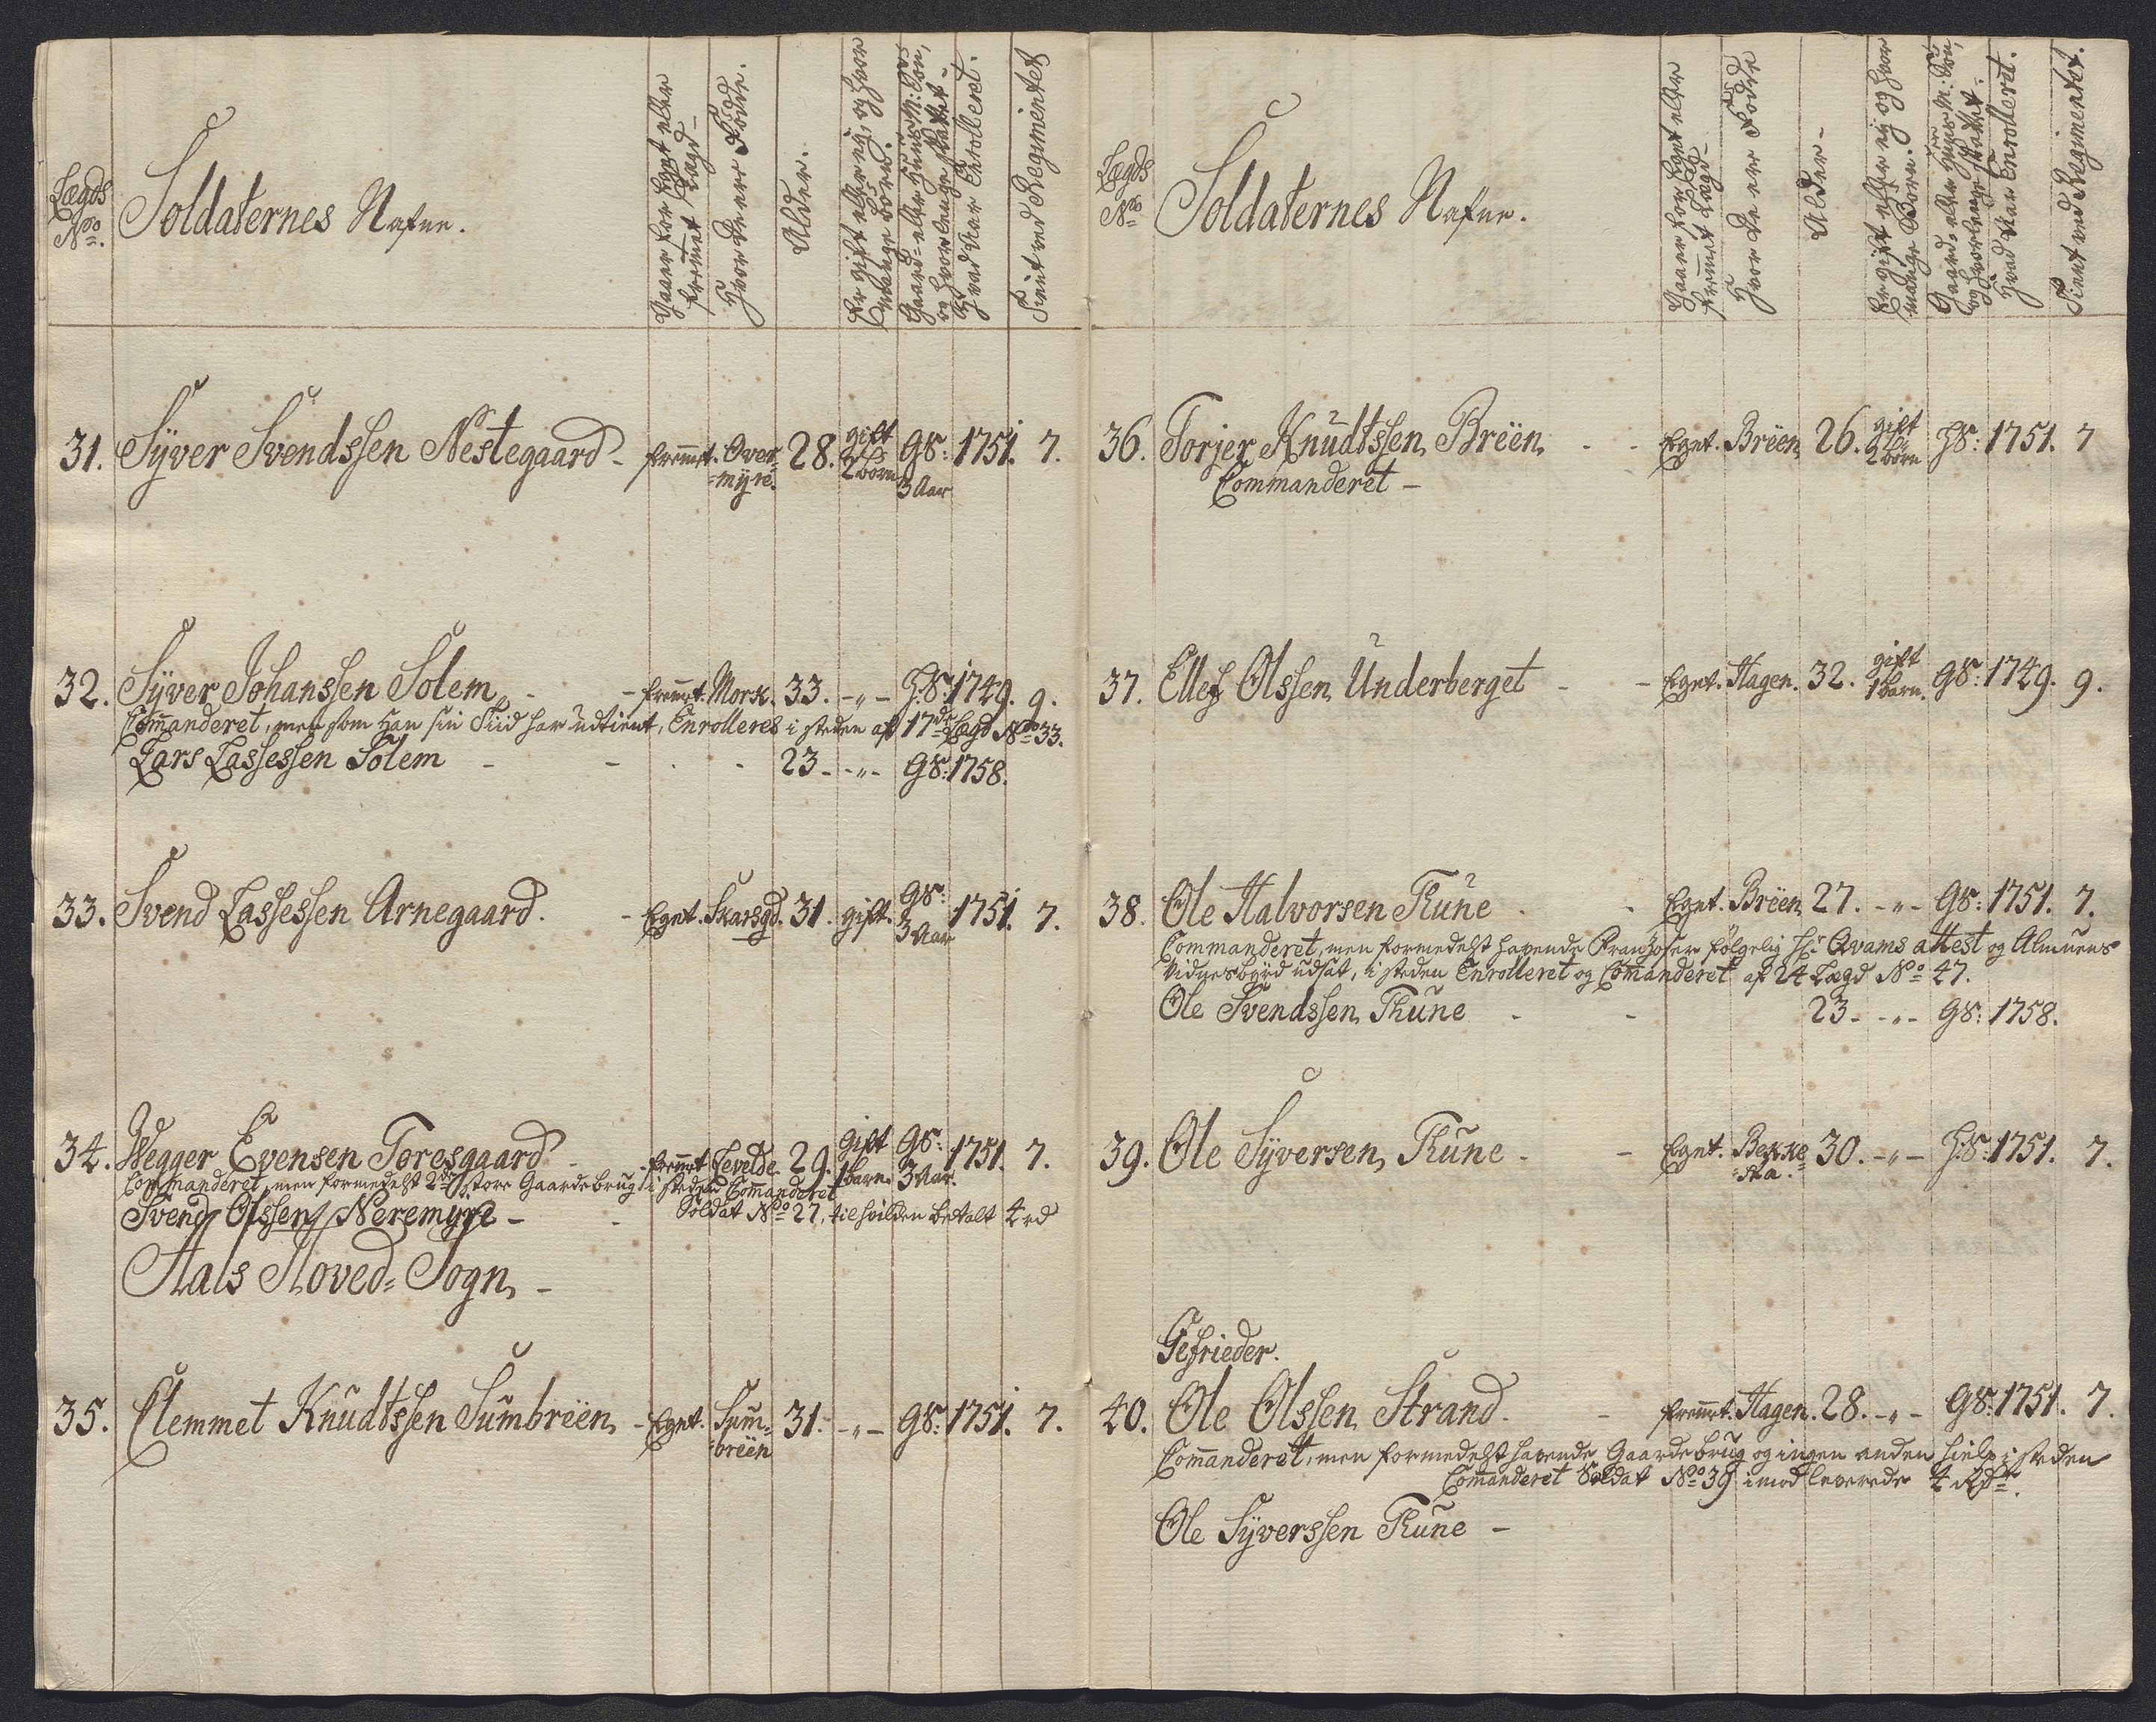 Lægds
No.
Soldaternes Nafne.
Gaaer for Egnt eller
fremmet Lægd-
Hvor de ere Fødde.
Alder.
Er gift eller eÿ, og hvor
mange Børn.
Gaard- eller Huus M: Søn,
og hvorlenge
Hvad Aar Enrolleret.
Tient ved Regimentet
31. Syver Svendssen Nestegaard - fremt. Over= 28. gift G S: 1751. 7.
=myre. 2 børn 3 Aar
32. Syver Johanssen Solem - - fremt. Mork. 33. -"- H S: 1749. 9.
Commanderet, men som han sin Tiid har udtient, Enrolleres i steden af 17de Lægd No 33.
Lars Lassessen Solem - - - - 23. -"- G S: 1758.
33. Svend Lassessen Arnegaard. - Egnt. Skarsgd. 31. gift. G S: 3 Aar 1751. 7.
34. Wegger Evensen Toresgaard - fremt. Levelde 29. gift 1 barn G S: 3 Aar. 1751. 7.
Commanderet, men formedelst 2de store Gaardebrug i steden Commanderet
Svend Olssen Neremyre - - Soldat No 27, til hvilken betalt 4 rd
Hals Hoved= Sogn, -
35. Clemmet Knudtssen Sumbreen, - Egnt. Sum= 31. -"- G S: 1751. 7.
=breen
Lægds
No
Soldaternes Nafne.
Gaaer for Egnt eller
fremmet Lægd-
Hvor de ere Fødde
Alder-
Er gift eller eÿ og hvor
mange Børn.
Gaard- eller Huus M: Søn,
og hvorlenge
Hvad Aar Enrolleret.
Tient ved Regimentet.
36. Torjer Knudtssen, Breen, - - Egnt. Breen, 26. gift 2 børn H S: 1751. 7
Commanderet -
37. Ellef Olssen, Underberget - - Egnt. Hagen. 32. gift 1 barn. G S: 1749. 9.
38. Ole Halvorsen Thune - - Egnt. Breen, 27. -"- G S: 1751. 7.
Commanderet, men formedelst havende Franzoser følgelig Hr Qvams attest og Almuens
Vidnesbyrd udsat, i steden Enrolleret og Commanderet af 24 Lægd No 47.
Ole Svendssen, Thune - - 23. -"- G S: 1758.
39. Ole Syversen, Thune - - Egnt. Bekke= 30. -"- H S: 1751. 7.
Gefrieder.
40. Ole Olssen Strand. - fremt. Hagen. 28. -"- G S: 1751. 7.
Commanderet, men formedelst havende Gaardebrug og ingen anden hielp i steden
Commanderet Soldat No 39 imod leverede 4 Rdr.
Ole Syverssen Thune -